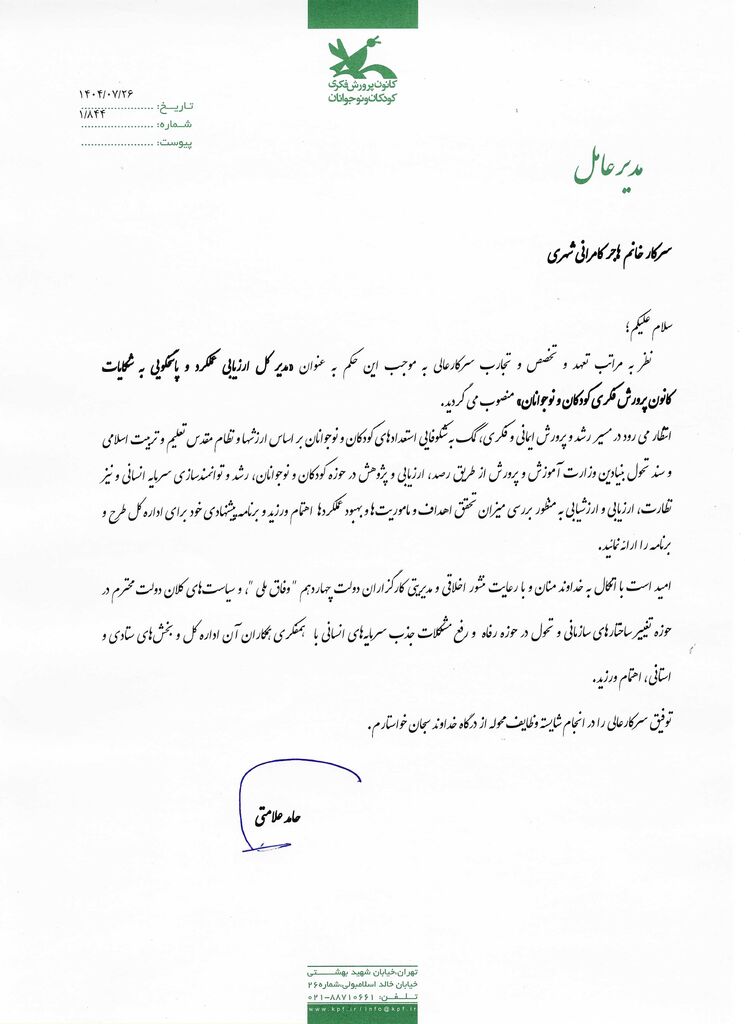 کانون پرورش فکری
کودکان و نوجوانان
تاریخ: ۱۴۰۴/۰۷/۲۶
شماره: ۱/۸۴۴
پیوست:
مدیر عامل
سرکار خانم هاجر کامرانی شهری
سلام علیکم؛
نظر به مراتب تعهد و تخصص و تجارب سرکارعالی به موجب این حکم به عنوان «مدیر کل ارزیابی عملکرد و پاسخگویی به شکایات
کانون پرورش فکری کودکان و نوجوانان» منصوب می گردید.
انتظار می رود در مسیر رشد و پرورش ایمانی و فکری، کمک به شکوفایی استعدادهای کودکان و نوجوانان بر اساس ارزشها و نظام مقدس تعلیم و تربیت اسلامی
و سند تحول بنیادین وزارت آموزش و پرورش از طریق رصد، ارزیابی و پژوهش در حوزه کودکان و نوجوانان، رشد و توانمندسازی سرمایه انسانی و نیز
نظارت، ارزیابی و ارزشیابی به منظور بررسی میزان تحقق اهداف و ماموریت ها و بهبود عملکردها اهتمام ورزید و برنامه پیشنهادی خود برای اداره کل طرح و
برنامه را ارائه نمائید.
امید است با اتکال به خداوند منان و با رعایت منشور اخلاقی و مدیریتی کارگزاران دولت چهاردهم "وفاق ملی"، و سیاست های کلان دولت محترم در
حوزه تغییر ساختارهای سازمانی و تحول در حوزه رفاه و رفع مشکلات جذب سرمایه های انسانی با همفکری همکاران آن اداره کل و بخش های ستادی و
استانی، اهتمام ورزید.
توفیق سرکارعالی را در انجام شایسته وظایف محوله از درگاه خداوند سبحان خواستارم.
حامد علامتی
تهران،خیابان شهید بهشتی
خیابان خالد اسلامبولی،شماره۲۶
تلفن: ۰۲۱-۸۸۷۱۰۶۶۱
www.kpf.ir/info@kpf.ir